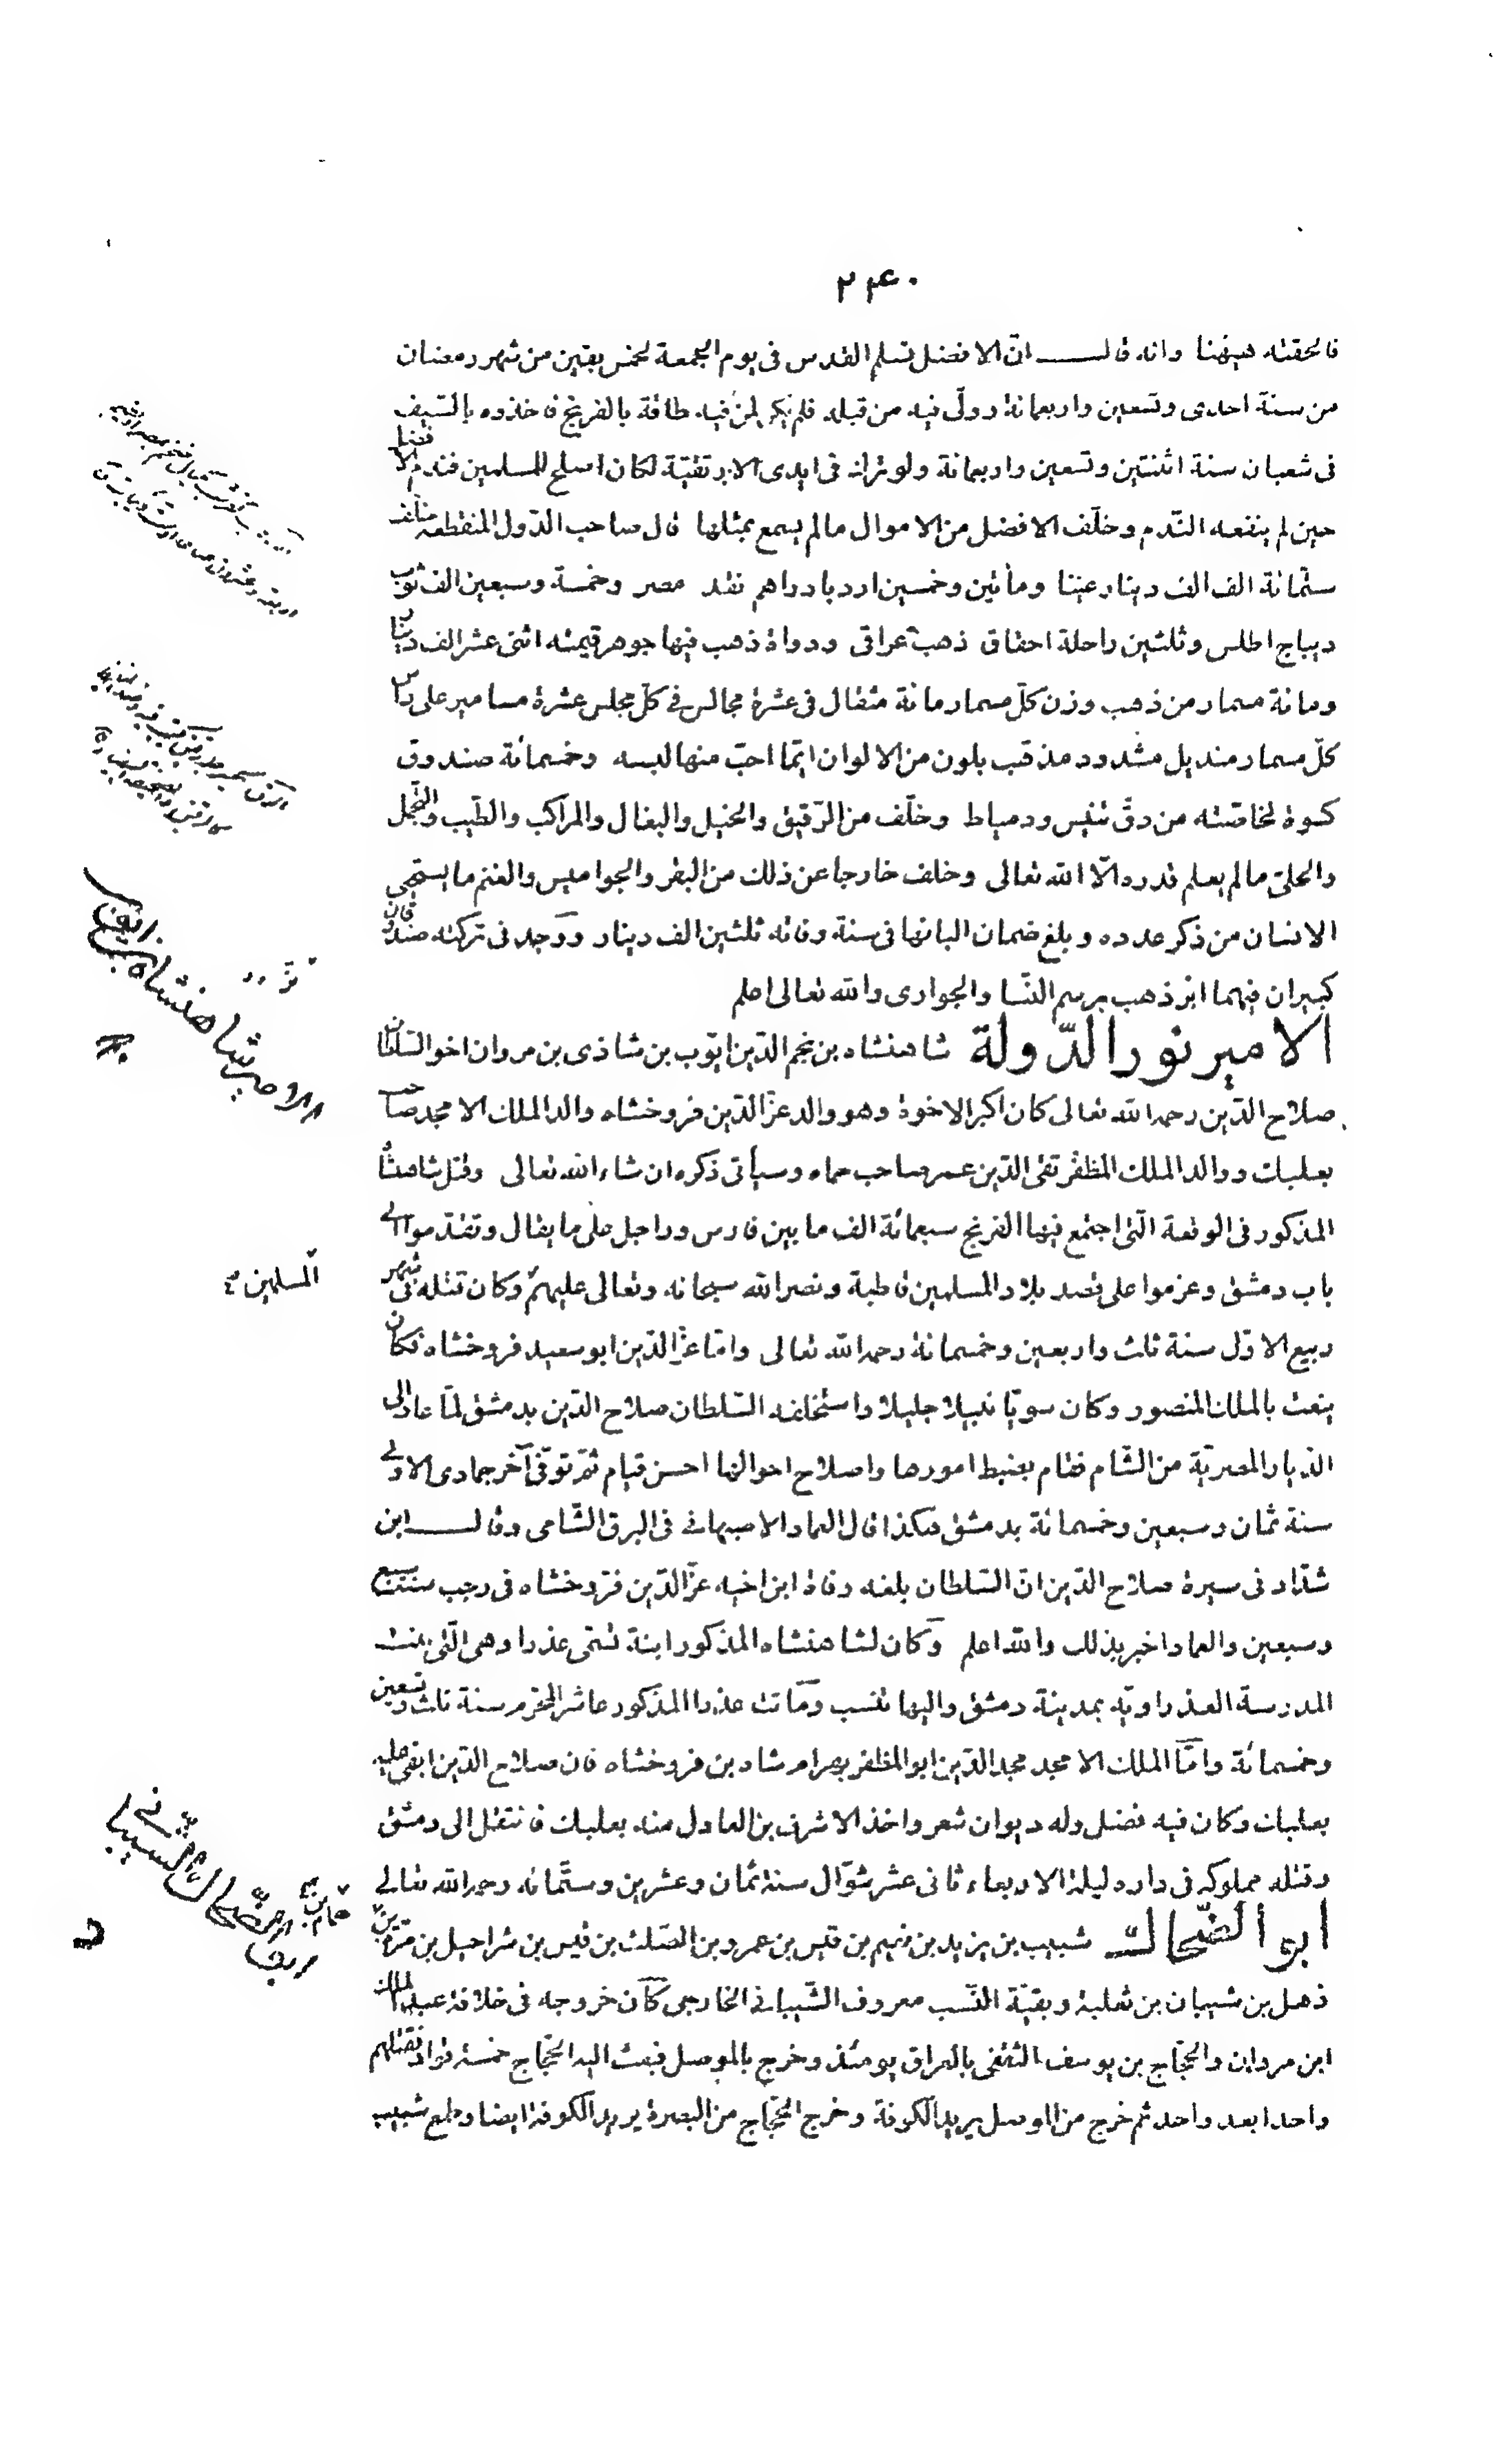 ٢٤٠
فالحقته هيهنا وانه قال انّ الافضل تسلم القدس فى يوم الجمعة لخمس بقين من شهر رمضان
من سنة احدى وتسعين واربعمائة وولّى فيه من قبله فلم يكن لمن فيه طاقة بالفرنج فاخذوه بالسّيف
فى شعبان سنة اثنتين وتسعين واربعمائة ولو تركه فى ايدى الارتقيّة لكان اصلح للمسلمين فندم الافضل
حين لم ينفعه النّدم وخلّف الافضل من الاموال ما لم يسمع بمثلها قال صاحب الدّول المنقطعة خلّف
ستّمائة الف الف دينار عينا ومأتين وخمسين اردبا دراهم نقد مصر وخمسة وسبعين الف ثوب
ديباج اطلس وثلثين راحلة احقاق ذهب عراقى ودواة ذهب فيها جوهر قيمته اثنى عشر الف دينار
ومائة مسمار من ذهب وزن كلّ مسمار مائة مثقال فى عشرة مجالس فى كلّ مجلس عشرة مسامير على راس
كلّ مسمار منديل مشدود مذهّب بلون من الالوان ايّما احبّ منها لبسه وخمسمائة صندوق
كسوة لخاصّته من دقّ تنّيس ودمياط وخلّف من الرّقيق والخيل والبغال والمراكب والطّيب والتّجمّل
والحلىّ ما لم يعلم قدره الّا الله تعالى وخلف خارجا عن ذلك من البقر والجواميس والغنم ما يستحى
الانسان من ذكر عدده وبلغ ضمان البانها فى سنة وفاته ثلثين الف دينار ووجد فى تركته صندوقان
كبيران فيهما ابر ذهب برسم النّسا والجوارى والله تعالى اعلم
الامير نور الدّولة شاهنشاه بن نجم الدّين ايّوب بن شاذى بن مروان اخو السّلطان
صلاح الدّين رحمه الله تعالى كان اكبر الاخوة وهو والد عزّ الدّين فروخشاه والد الملك الامجد صاحب
بعلبك ووالد الملك المظفّر تقى الدّين عمر صاحب حماه وسيأتى ذكره ان شاء الله تعالى وقتل شاهنشاه
المذكور فى الوقعة الّتى اجتمع فيها الفرنج سبعمائة الف ما بين فارس وراجل على ما يقال وتقدّموا الى
باب دمشق وعزموا على قصد بلاد المسلمين قاطبة ونصر الله سبحانه وتعالى عليهم وكان قتله فى شهر
المسلمين
ربيع الاوّل سنة ثلث واربعين وخمسمائة رحمه الله تعالى وامّا عزّ الدّين ابو سعيد فروخشاه فكان
ينعت بالملك المنصور وكان سريّا نبيلا جليلا واستخلفه السّلطان صلاح الدّين بدمشق لمّا عاد الى
الدّيار المصريّة من الشّام فقام بضبط امورها واصلاح احوالها احسن قيام ثمّ توفّى آخر جمادى الاولى
سنة ثمان وسبعين وخمسمائة بدمشق هكذا قال العماد الاصبهانى فى البرق الشّامى وقال ابن
شدّاد فى سيرة صلاح الدّين انّ السّلطان بلغه وفاة ابن اخيه عزّ الدّين فرّوخشاه فى رجب سنة سبع
وسبعين والعماد اخبر بذلك والله اعلم وكان لشاهنشاه المذكور ابنة تسمّى عذرا وهى الّتى بنت
المدرسة العذراويّه بمدينة دمشق واليها تنسب وماتت عذرا المذكور عاشر المحرّم سنة ثلث وتسعين
وخمسمائة وامّا الملك الامجد مجد الدّين ابو المظفر بهرام شاه بن فروخشاه فان صلاح الدّين ابقى عليه
بعلبك وكان فيه فضل وله ديوان شعر واخذ الاشرف بن العادل منه بعلبك فانتقل الى دمشق
وقتله مملوكه فى داره ليلة الاربعاء ثانى عشر شوّال سنة ثمان وعشرين وستّمائه رحمه الله تعالى
ابو الضّحاك شبيب بن يزيد بن نعيم بن قيس بن عمرو بن الصّلت بن قيس بن شراحيل بن مرّة بن
ذهل بن شيبان بن ثعلبة وبقيّة النّسب معروف الشّيبانى الخارجى كان خروجه فى خلافة عبد الملك
ابن مروان والحجّاج بن يوسف الثقفى بالعراق يومئذ وخرج بالموصل فبعث اليه الحجّاج خمسة قواد فقتلهم
واحدا بعد واحد ثم خرج من الموصل يريد الكوفة وخرج الحجّاج من البصرة يريد الكوفة ايضا وطمع شبيب